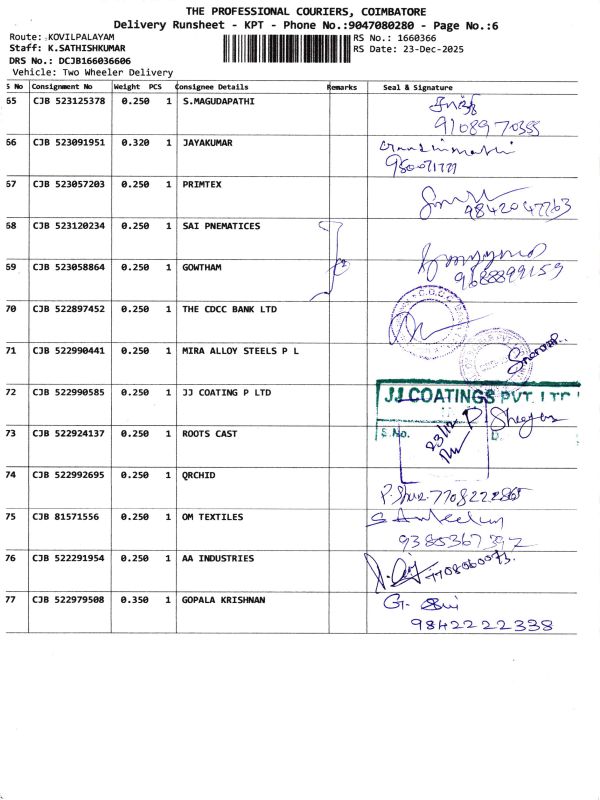 THE PROFESSIONAL COURIERS, COIMBATORE
Delivery Runsheet - KPT - Phone No.:9047080280 - Page No.:6
Route: KOVILPALAYAM RS No.: 1660366
Staff: K.SATHISHKUMAR RS Date: 23-Dec-2025
DRS No.: DCJB166036606
Vehicle: Two Wheeler Delivery
S No Consignment No Weight PCS Consignee Details Remarks Seal & Signature
65 CJB 523125378 0.250 1 S.MAGUDAPATHI
9108970355
66 CJB 523091951 0.320 1 JAYAKUMAR
67 CJB 523057203 0.250 1 PRIMTEX
9842047763
68 CJB 523120234 0.250 1 SAI PNEMATICES
69 CJB 523058864 0.250 1 GOWTHAM
9688899159
70 CJB 522897452 0.250 1 THE CDCC BANK LTD
71 CJB 522990441 0.250 1 MIRA ALLOY STEELS P L
72 CJB 522990585 0.250 1 JJ COATING P LTD
JJ COATINGS PVT. LTD
73 CJB 522924137 0.250 1 ROOTS CAST
S.No. D.
23/12
74 CJB 522992695 0.250 1 QRCHID
7708222865
75 CJB 81571556 0.250 1 OM TEXTILES
9385367392
76 CJB 522291954 0.250 1 AA INDUSTRIES
7708060073
77 CJB 522979508 0.350 1 GOPALA KRISHNAN
9842222338